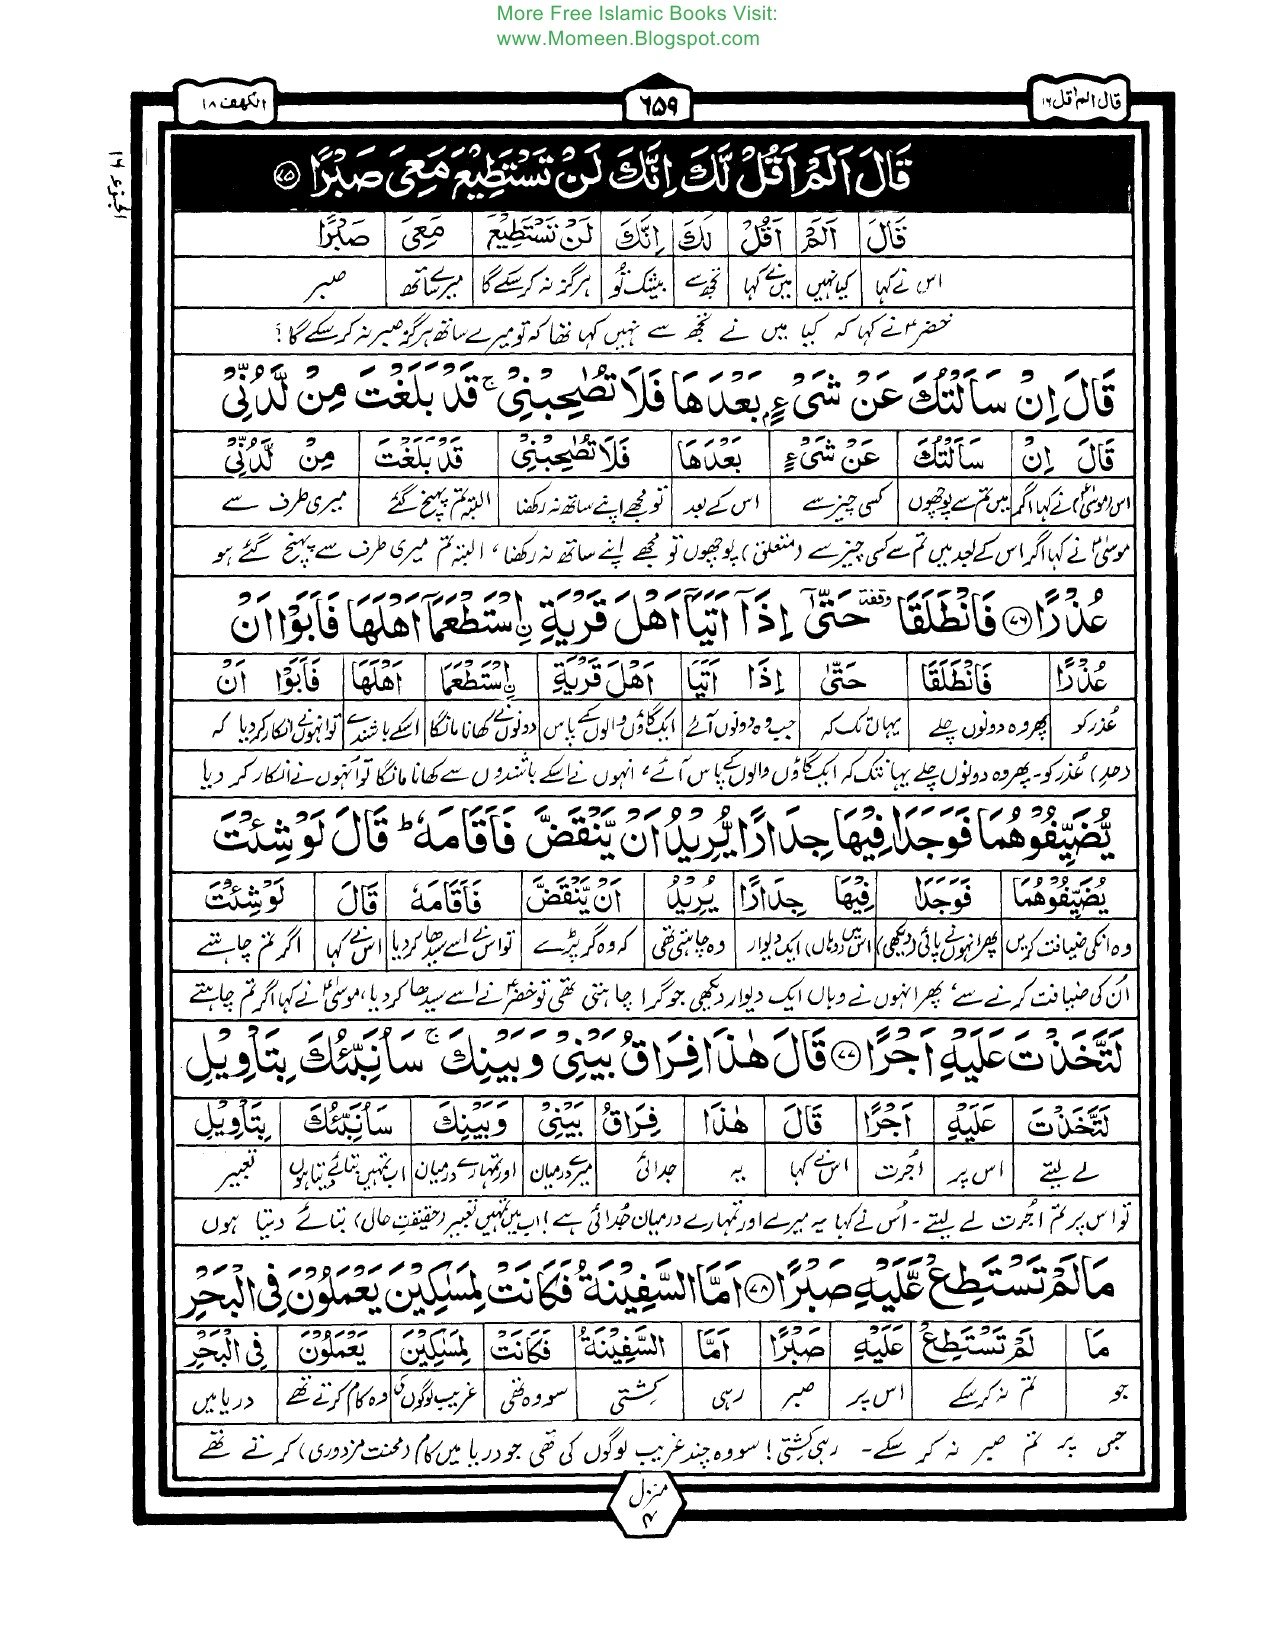 More Free Islamic Books Visit:
www.Momeen.Blogspot.com
قال الم اقل ١٦
٦٥٩
الکهف ١٨
الجزء ١٦
قَالَ اَلَمْ اَقُلْ لَّكَ اِنَّكَ لَنْ تَسْتَطِيْعَ مَعِيَ صَبْرًا ۝۷۵
قَالَ اَلَمْ اَقُلْ لَكَ اِنَّكَ لَنْ تَسْتَطِيْعَ مَعِيَ صَبْرًا
اس نے کہا کیا نہیں میں نے کہا تجھ سے بیشک تُو ہرگز نہ کرسکے گا میرے ساتھ صبر
خضرؑ نے کہا کہ کیا میں نے تجھ سے نہیں کہا تھا کہ تو میرے ساتھ ہرگز صبر نہ کرسکے گا؟
قَالَ اِنْ سَاَلْتُكَ عَنْ شَيْءٍۭ بَعْدَهَا فَلَا تُصٰحِبْنِيْ ۚ قَدْ بَلَغْتَ مِنْ لَّدُنِّيْ
قَالَ اِنْ سَاَلْتُكَ عَنْ شَيْءٍ بَعْدَهَا فَلَا تُصٰحِبْنِيْ قَدْ بَلَغْتَ مِنْ لَّدُنِّيْ
اس (موسیٰؑ) نے کہا اگر میں تم سے پوچھوں کسی چیز سے اس کے بعد تو مجھے اپنے ساتھ نہ رکھنا البتہ تم پہنچ گئے میری طرف سے
موسیٰؑ نے کہا اگر اس کے بعد میں تم سے کسی چیز سے (متعلق) پوچھوں تو مجھے اپنے ساتھ نہ رکھنا، البتہ تم میری طرف سے پہنچ گئے ہو
عُذْرًا ۝۷۶ فَانْطَلَقَا ۥوقفة حَتّٰٓى اِذَآ اَتَيَآ اَهْلَ قَرْيَةِ ِۨاسْتَطْعَمَآ اَهْلَهَا فَاَبَوْا اَنْ
عُذْرًا فَانْطَلَقَا حَتّٰى اِذَا اَتَيَا اَهْلَ قَرْيَةِ ِۨاسْتَطْعَمَا اَهْلَهَا فَاَبَوْا اَنْ
عُذر کو پھر وہ دونوں چلے یہاں تک کہ جب وہ دونوں آئے ایک گاؤں والوں کے پاس دونوں نے کھانا مانگا اسکے باشندے تو انہوں نے انکار کردیا کہ
(حدِ) عُذر کو۔ پھر وہ دونوں چلے یہانتک کہ ایک گاؤں والوں کے پاس آئے، انہوں نے اسکے باشندوں سے کھانا مانگا تو اُنہوں نے انکار کر دیا
يُّضَيِّفُوْهُمَا فَوَجَدَا فِيْهَا جِدَارًا يُّرِيْدُ اَنْ يَّنْقَضَّ فَاَقَامَهٗ ؕ قَالَ لَوْ شِئْتَ
يُضَيِّفُوْهُمَا فَوَجَدَا فِيْهَا جِدَارًا يُرِيْدُ اَنْ يَّنْقَضَّ فَاَقَامَهٗ قَالَ لَوْ شِئْتَ
وہ انکی ضیافت کریں پھر انہوں نے پائی (دیکھی) اس میں (وہاں) ایک دیوار وہ چاہتی تھی کہ وہ گر پڑے تو اس نے اسے سیدھا کردیا اس نے کہا اگر تم چاہتے
اُن کی ضیافت کرنے سے، پھر انہوں نے وہاں ایک دیوار دیکھی جو گرا چاہتی تھی تو خضرؑ نے اسے سیدھا کر دیا، موسیٰؑ نے کہا اگر تم چاہتے
لَتَّخَذْتَ عَلَيْهِ اَجْرًا ۝۷۷ قَالَ هٰذَا فِرَاقُ بَيْنِيْ وَبَيْنِكَ ۚ سَاُنَبِّئُكَ بِتَاْوِيْلِ
لَتَّخَذْتَ عَلَيْهِ اَجْرًا قَالَ هٰذَا فِرَاقُ بَيْنِيْ وَبَيْنِكَ سَاُنَبِّئُكَ بِتَاْوِيْلِ
لے لیتے اس پر اُجرت اس نے کہا یہ جدائی میرے درمیان اور تمہارے درمیان اب تمہیں بتائے دیتا ہوں تعبیر
تو اس پر تم اُجرت لے لیتے۔ اُس نے کہا یہ میرے اور تمہارے درمیان جُدائی ہے! اب میں تمہیں تعبیر (حقیقتِ حال) بتائے دیتا ہوں
مَا لَمْ تَسْتَطِعْ عَّلَيْهِ صَبْرًا ۝۷۸ اَمَّا السَّفِيْنَةُ فَكَانَتْ لِمَسٰكِيْنَ يَعْمَلُوْنَ فِي الْبَحْرِ
مَا لَمْ تَسْتَطِعْ عَلَيْهِ صَبْرًا اَمَّا السَّفِيْنَةُ فَكَانَتْ لِمَسٰكِيْنَ يَعْمَلُوْنَ فِي الْبَحْرِ
جو تم نہ کرسکے اس پر صبر رہی کشتی سو وہ تھی غریب لوگوں کی وہ کام کرتے تھے دریا میں
جس پر تم صبر نہ کر سکے۔ رہی کشتی! سو وہ چند غریب لوگوں کی تھی جو دریا میں کام (محنت مزدوری) کرتے تھے
منزل
۴